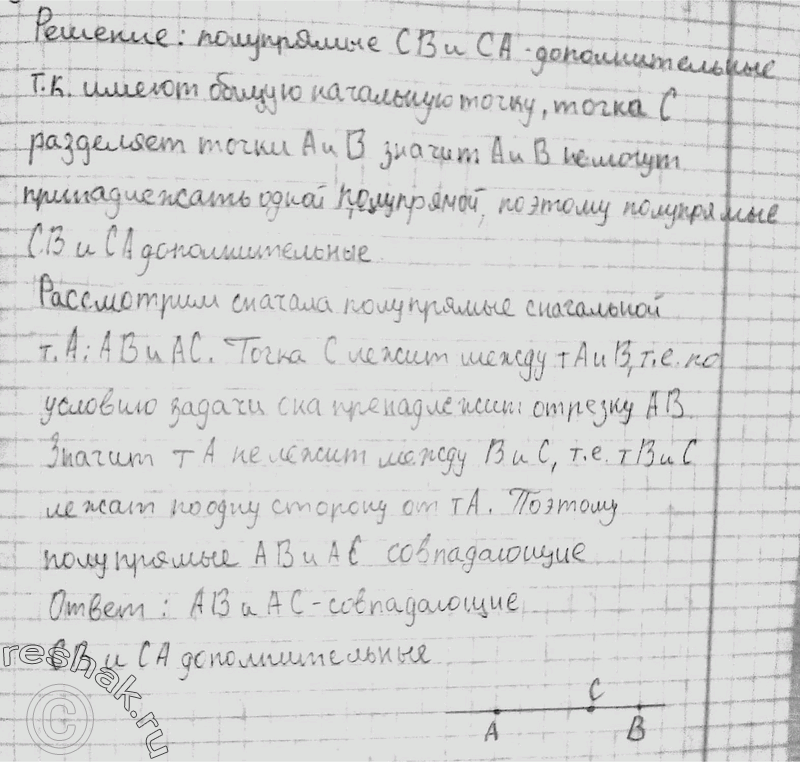 Решение: полупрямые СВ и СА - дополнительные
т.к. имеют общую начальную точку, точка С
разделяет точки А и В значит А и В немогут
принадлежать одной полупрямой, поэтому полупрямые
СВ и СА дополнительные
Рассмотрим сначала полупрямые сначальной
т. А: АВ и АС. Точка С лежит между т А и В, т.е. по
условию задачи она пренадлежит отрезку АВ.
Значит т А не лежит между В и С, т.е. т В и С
лежат по одну сторону от т А. Поэтому
полупрямые АВ и АС совпадающие
Ответ: АВ и АС - совпадающие
СВ и СА дополнительные
reshak.ru
©
С
А В